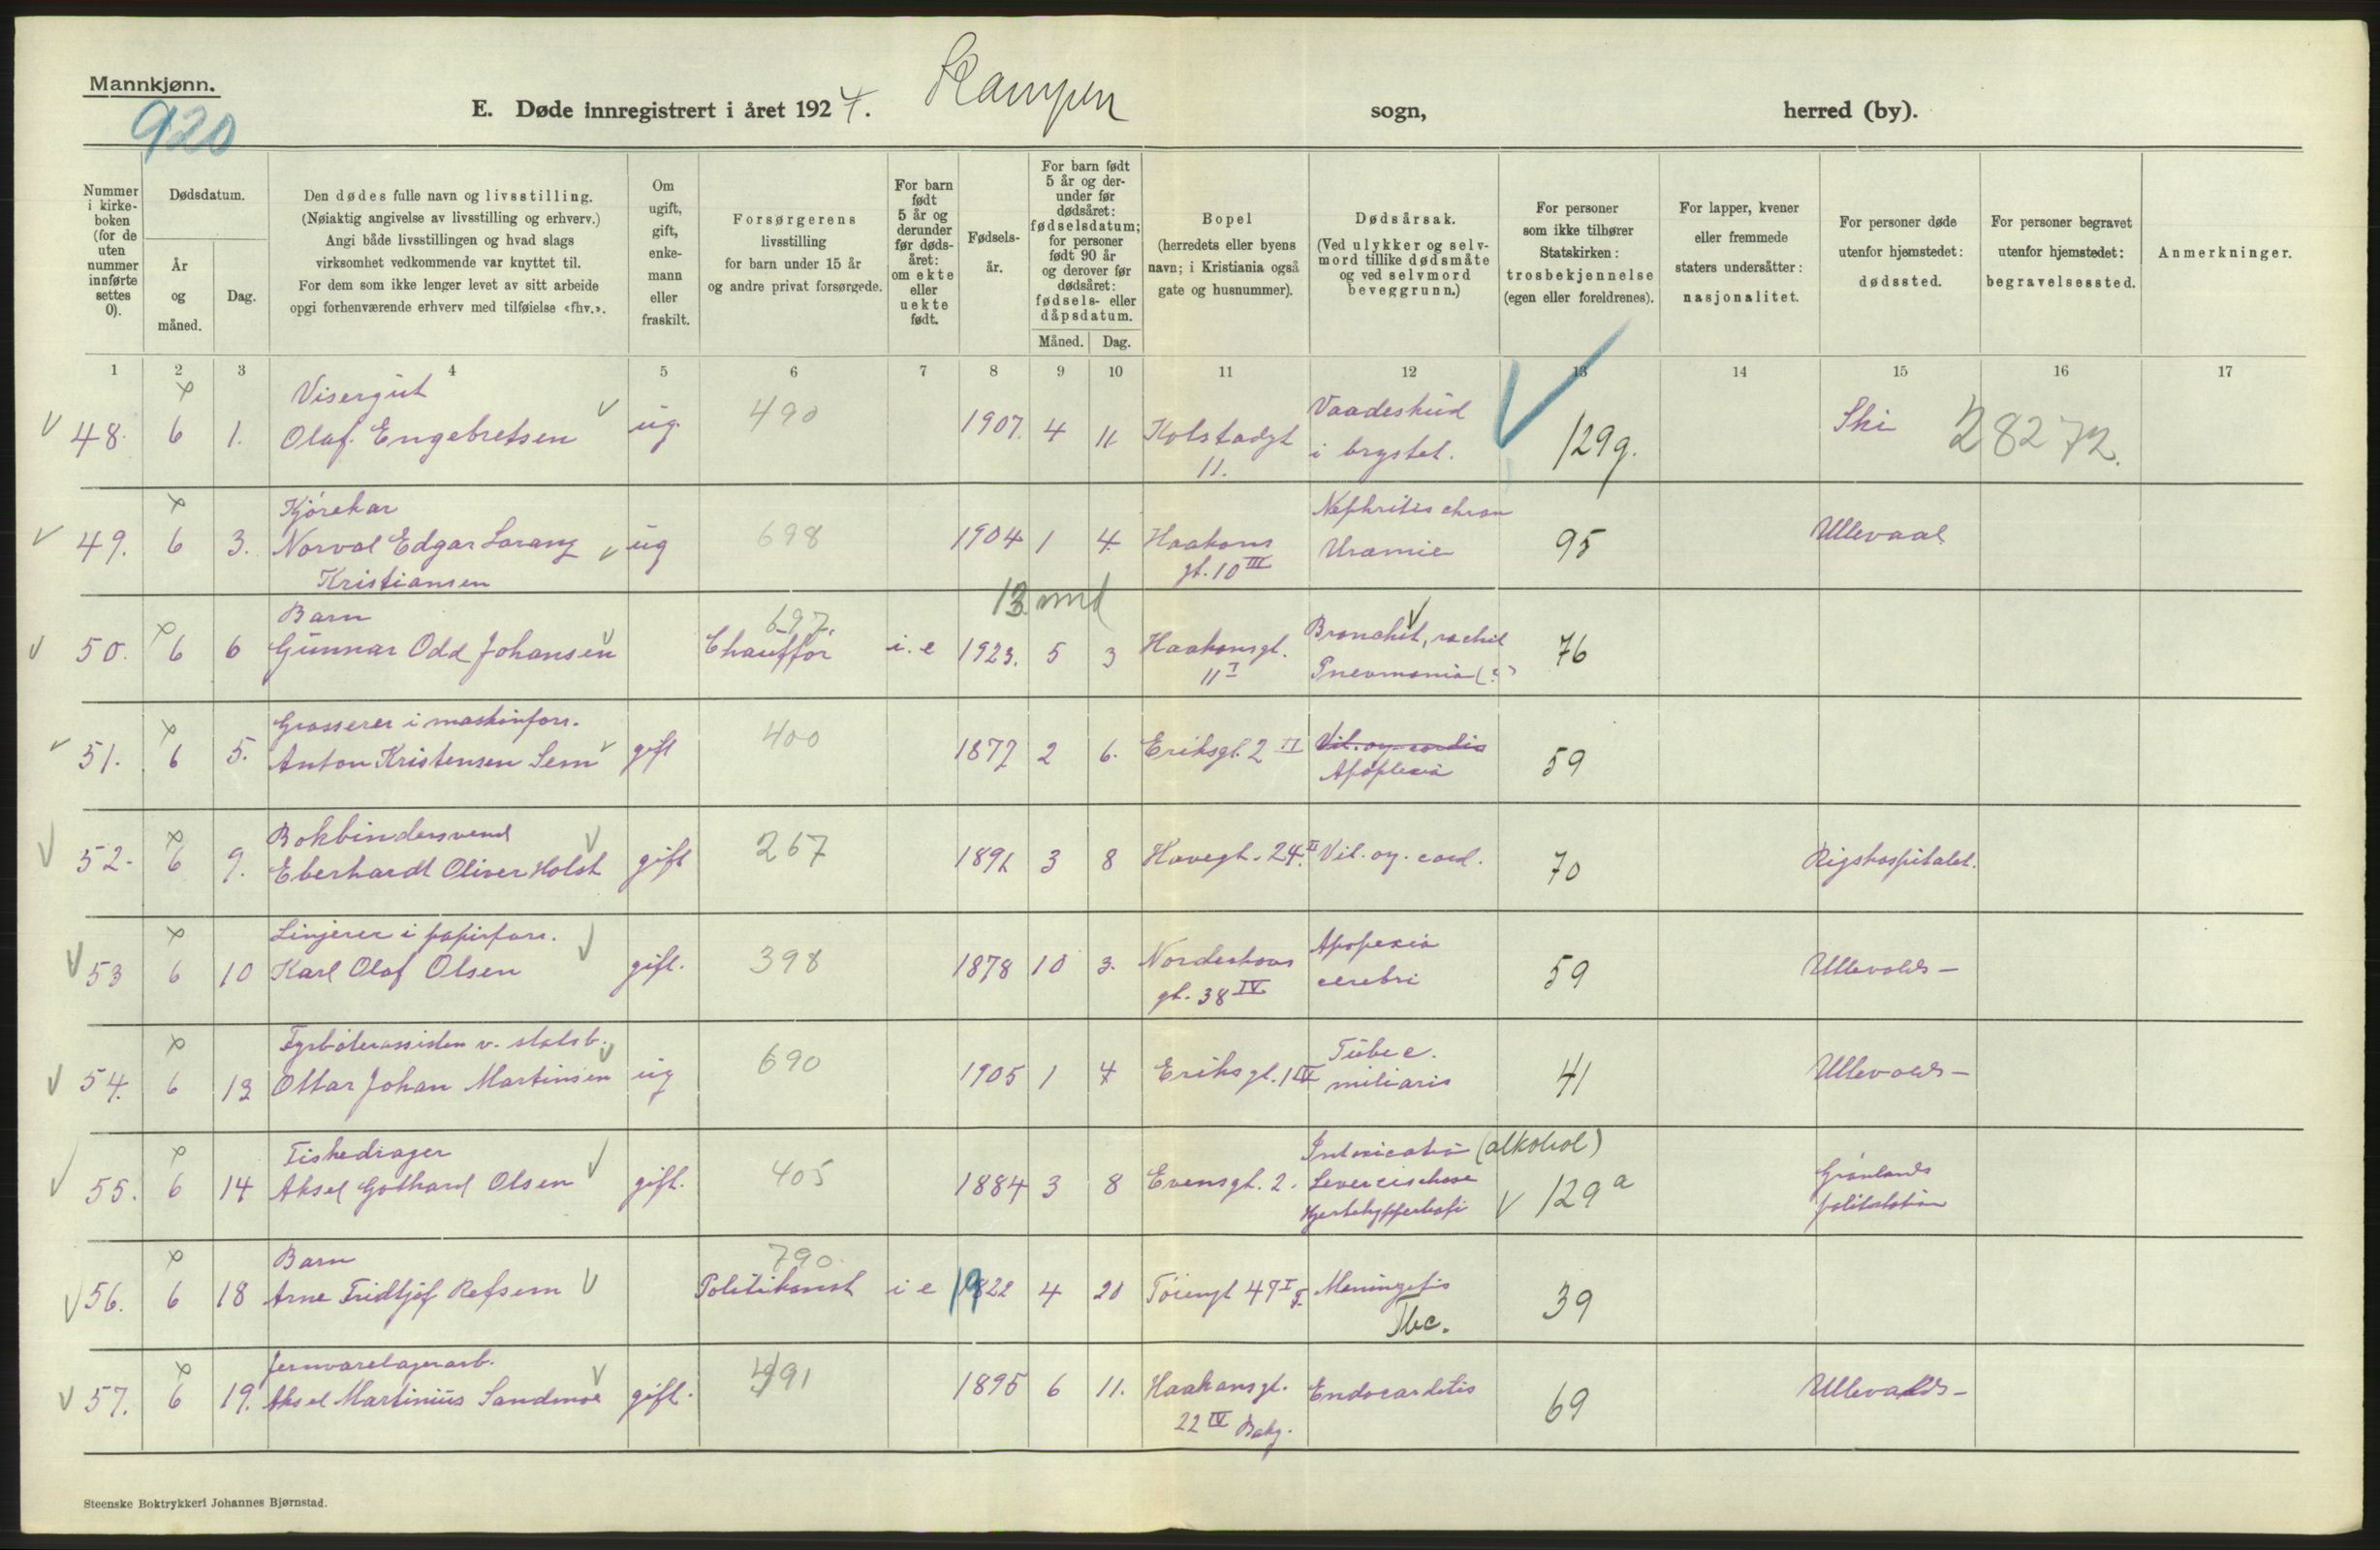 Mannkjønn.
920
E. Døde innregistrert i året 1924. Kampen sogn, herred (by).
Nummer i kirke-boken (for de uten nummer innførte settes 0).
Dødsdatum.
År og måned.
Dag.
Den dødes fulle navn og livsstilling.
(Nøiaktig angivelse av livsstilling og erhverv.)
Angi både livsstillingen og hvad slags
virksomhet vedkommende var knyttet til.
For dem som ikke lenger levet av sitt arbeide
opgi forhenværende erhverv med tilføielse «fhv.».
Om ugift, gift, enke-mann eller fraskilt.
Forsørgerens
livsstilling
for barn under 15 år
og andre privat forsørgede.
For barn født 5 år og derunder før døds-året: om ekte eller uekte født.
Fødsels-år.
For barn født 5 år og der-under før dødsåret: fødselsdatum; for personer født 90 år og derover før dødsåret: fødsels- eller dåpsdatum.
Måned. Dag.
Bopel
(herredets eller byens
navn; i Kristiania også
gate og husnummer).
Dødsårsak.
(Ved ulykker og selv-mord tillike dødsmåte og ved selvmord beveggrunn.)
For personer
som ikke tilhører
Statskirken:
trosbekjennelse
(egen eller foreldrenes).
For lapper, kvener
eller fremmede
staters undersåtter:
nasjonalitet.
For personer døde
utenfor hjemstedet:
dødssted.
For personer begravet
utenfor hjemstedet:
begravelsessted.
Anmerkninger.
1 2 3 4 5 6 7 8 9 10 11 12 13 14 15 16 17
Visergut
48. 6 1. Olaf Engebretsen ug. 490 1907. 4 11 Kolstadgt 11. Vaadeskud i brystet. 129g. Ski 28272.
Kjørekar
49. 6 3. Norval Edgar Lorang Kristiansen ug 698 1904 1 4. Haakons gt. 10 III Nephritis chron Uræmie 95 Ullevaal
13 md
Barn
50. 6 6 Gunnar Odd Johansen 697. Chauffør i. e 1923. 5 3 Haakonsgt. 11 I Bronchit, rachit Pneumonia (?) 76
Grosserer i maskinforr.
51. 6 5. Anton Kristensen Sem gift 400 1877 2 6. Eriksgt. 2 II Vit. og. cordis Apoplexia 59
Bokbindersvend
52. 6 9. Eberhardt Oliver Holst gift 267 1891 3 8 Havegt. 24. II Vit. og. cord. 70 Rigshospitalet.
Linjerer i papirforr.
53 6 10 Karl Olaf Olsen gift. 398 1878 10 3. Nordehovs gt. 38 IV Apopexia cerebri 59 Ullevolds-
Fyrbøterassisten v. statsb.
54. 6 13 Ottar Johan Martinsen ug 690 1905 1 4 Eriksgt. 1 IV Tuberc. miliaris 41 Ullevolds-
Fiskedrager
55. 6 14 Aksel Gothard Olsen gift. 405 1884 3 8 Evensgt. 2. Intoxicatio (alkohol) Levercirrhose Hjertehypertrofi 129 a Grønlands politistation
Barn
56. 6 18 Arne Fridtjof Refsem 790. Politikonst i e 1922 4 20 Tøiengt 47 I Meningitis Tbc. 39
Jernvarelagerarb.
57. 6 19. Aksel Martinius Sandmoe gift. 491 1895 6 11. Haakonsgt. 22 IV Bakg. Endocarditis 69 Ullevolds-
Steenske Boktrykkeri Johannes Bjørnstad.